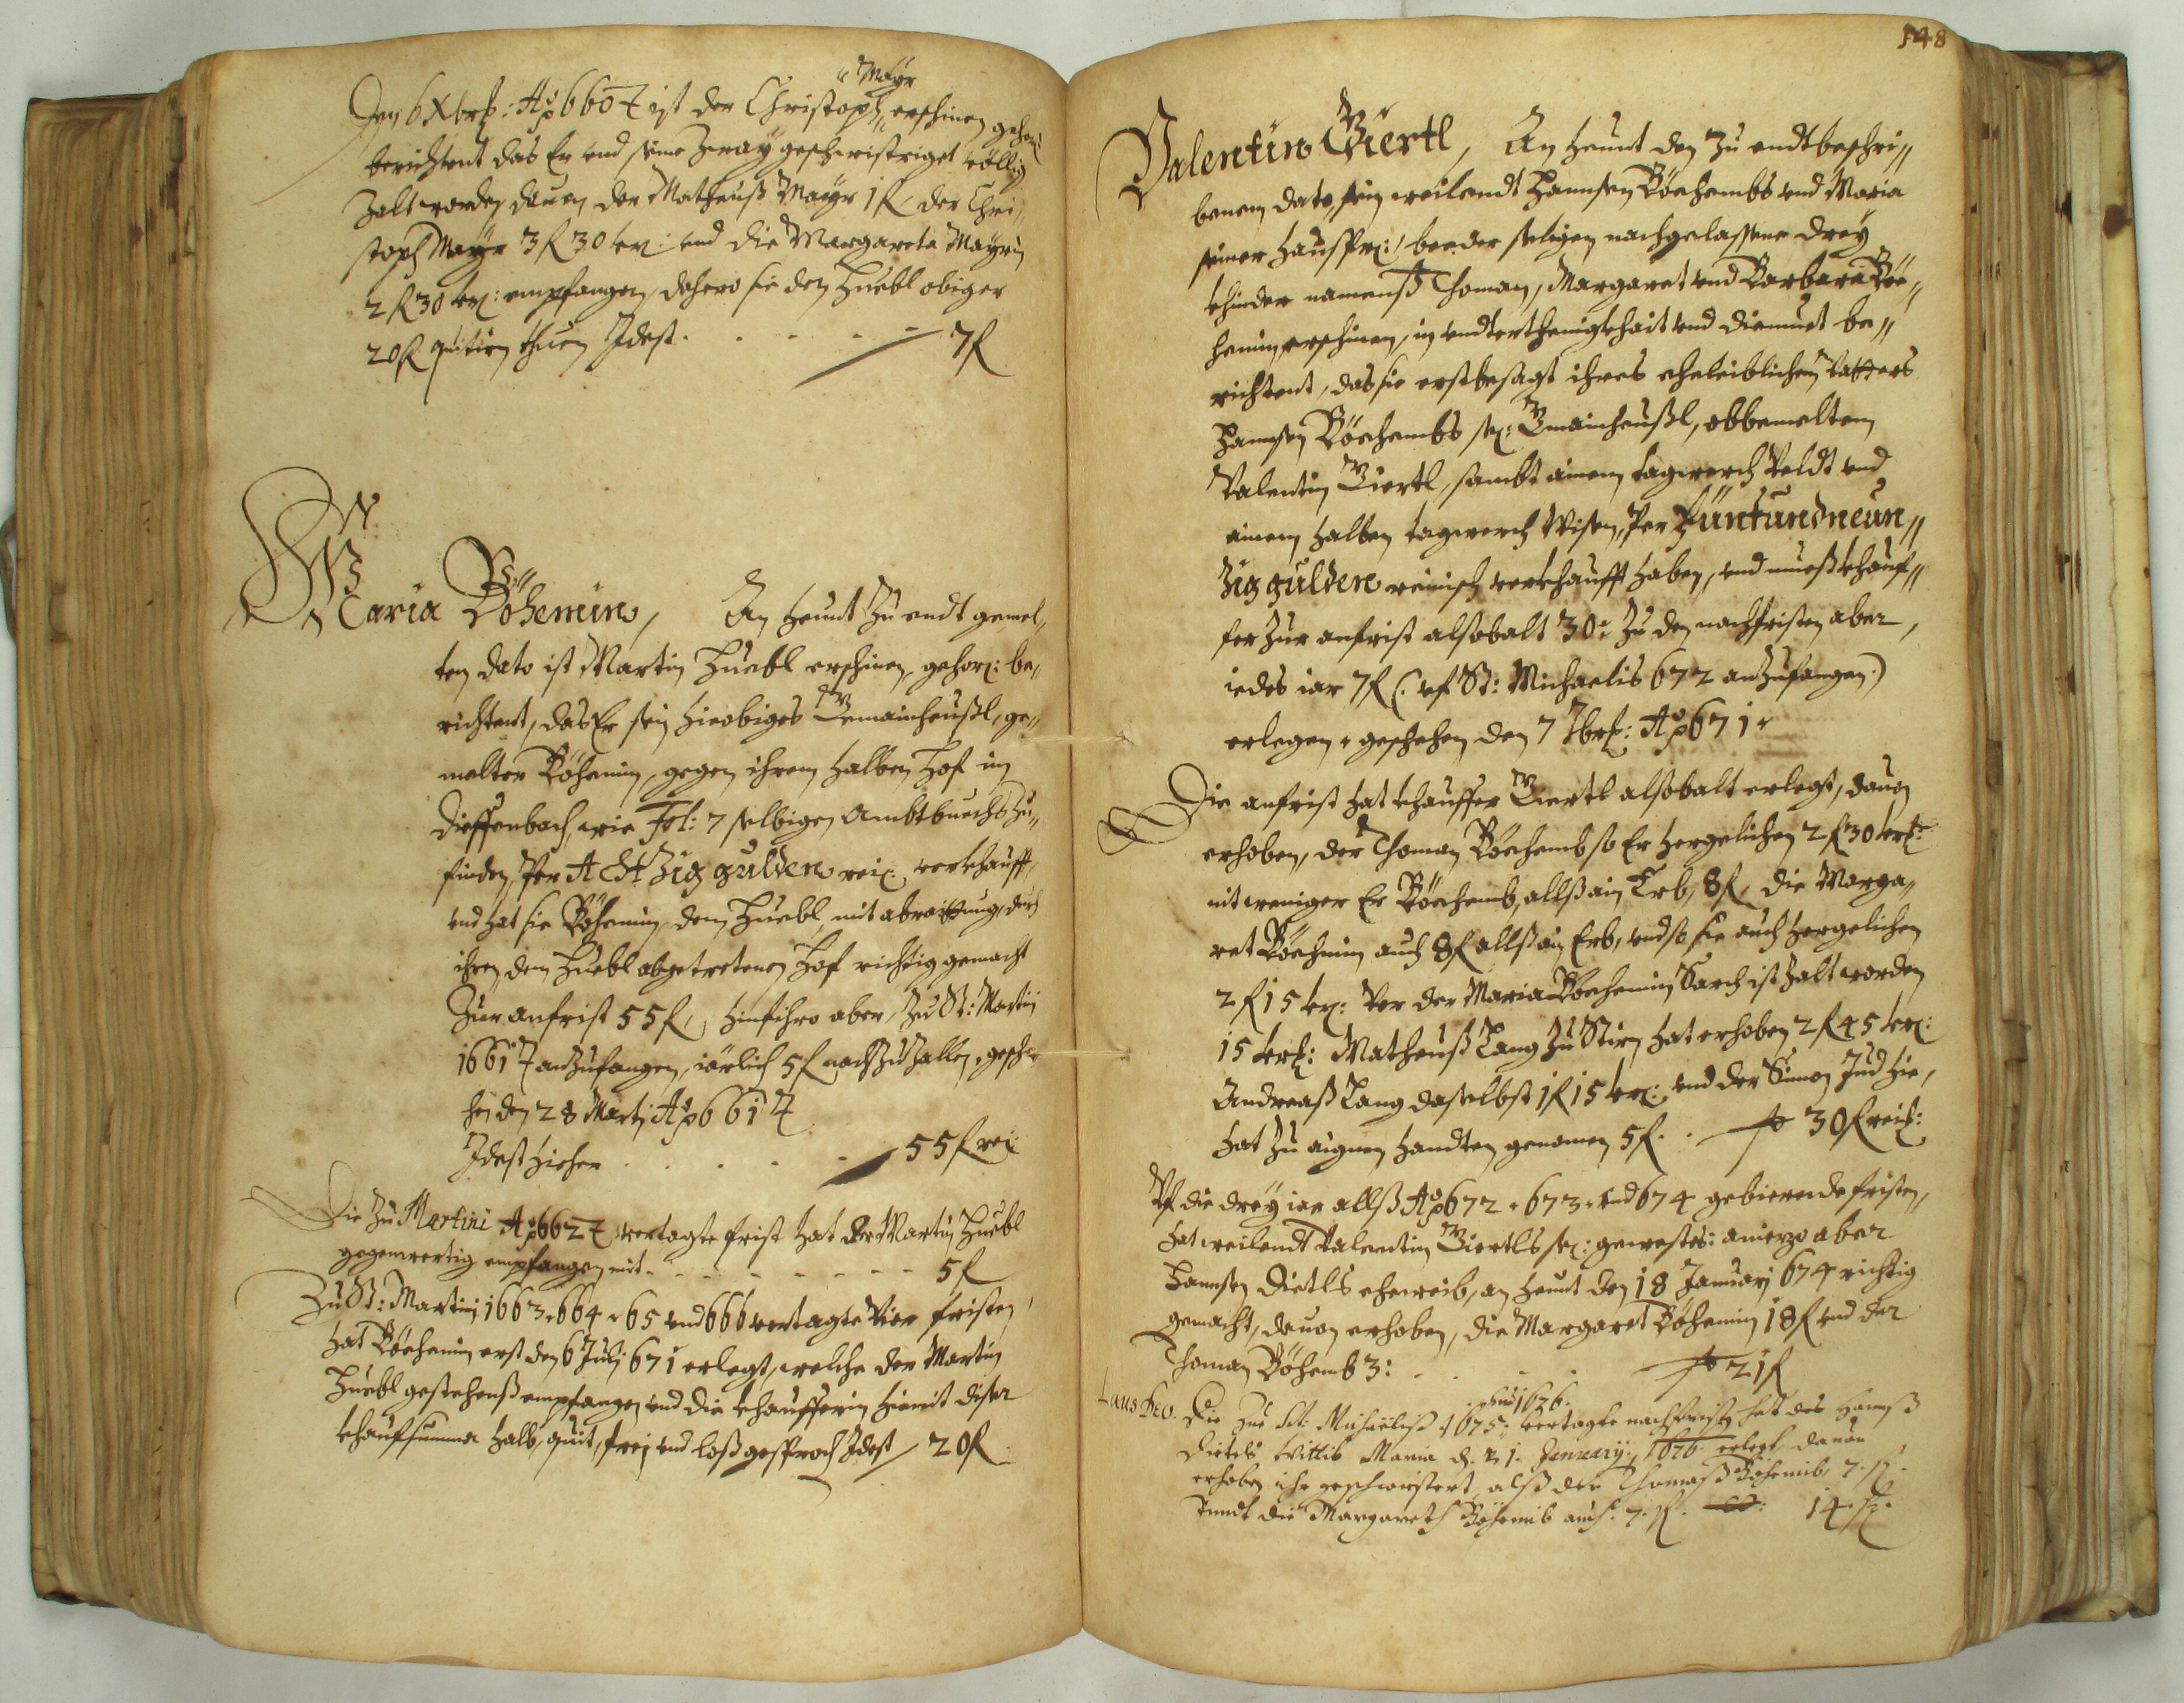 Mayr
Den 6 Xbrß: Aō 660 ist der Christoph erschinen gehors:
berichtent das Er vnd seine zway geschwistriget völlig
zalt worden, dauon der Matheuß Mayr 1 fl der Chri„
stoph Mayr 3 fl 30 kr: vnd die Margareta Mayrin
2 fl 30 kr: empfangen, dahero sie den Huebl obiger
20 fl quitirn thuen Idest . . . . 7 fl
Maria Böhemin, An heunt zu endt gemel„
ten dato ist Martin Huebl erschinen, gehors: be„
richtent, das Er sein hieobiges Gemainheußl, ge„
melter Böhemin, gegen ihrem halben Hof in
Dieffenbach, wie Fol: 7 selbigen Ambtbuechs zu„
finden, Per Achtzig gulden rei: verkhaufft,
vnd hat sie Böhemin, dem Huebl, mit abraittung, durch
ihren dem Huebl abgetretenen Hof richtig gemacht
Zur anfrist 55 fl, hinfihro aber, zu St: Martin
1661 anzufangen, iärlich 5 fl nachzuzallen, gesche„
hen den 28 Martj Aō 661
Idest hieher . . . . . 55 fl rei:
Die zu Martini Aō 662 vertagte frist hat der Martin Huebl
gegenwertig empfangen mit . . . . . 5 fl
Zu St: Martinj 1663. 664. 65 vnd 666 vertagte Vier fristen,
hat Böehemin erst den 6 Julj 671 erlegt, welche der Martin
Huebl gestehenß empfangen vnd die khaufferin hiemit diser
khaufsumma halb, quit, frej vnd loß gesproch Idest / 20 fl
148
Valentin Viertl, An heunt den zu endtbeschri„
benem dato, sein weilendt Hannsen Böehembs vnd Maria
seiner Haussfr:, beeder seligen nachgelassene drey
khinder namenß Thoman, Margaret vnd Barbara Böe„
hemin erschinen, in vndterthenigkhait vnd diemuet be„
richtent, das sie erstbesagt ihres eheleiblichen Vatters
Hannsen Böehembs se: Gmainheußl, obbemeltem
Valentin Viertl, sambt ainem tagwerch Veldt vnd
ainem halben tagwerch Wisen, Per Fünfundneun„
zig gulden reinisch verkhaufft haben, vnd mueß khauf„
fer zur anfrist alsobalt 30: zu den nachfristen aber,
iedes iar 7 fl (: vf St: Michaelis 672 anzufangen :)
erlegen, geschehen den 7 7brß: Aō 671.
Die anfrist hat khauffer Viertl alsobalt erlegt, dauon
erhoben, der Thoman Böehemb so Er hergelichen 2 fl 30 kr:
nit weniger Er Böehemb, allß ain Erb, 8 fl, die Marga„
ret Böehmin auch 8 fl allß ain Erb, vnd so sie auch hergelichen
2 fl 15 kr: Vor der Maria Böehemin Sarch ist zalt worden
15 kr: Matheuß Lang zu Stirn hat erhoben 2 fl 45 kr:
Andreaß Lang daselbst 1 fl 15 kr: vnd der Simon Jud hie,
hat zu aignen handten genomen 5 fl. . 30 fl rei:
Vf die drey iar allß Aō 672. 673. vnd 674 gebierende fristen,
hat weilendt Valentin Viertls se: gewestes: aniezo aber
Hannsen Dietls eheweib, an heunt den 18 Januarj 674 richtig
gemacht, dauon erhoben, die Margaret Böhemin 18 fl vnd der
Thoman Böhemb 3: . . . . 21 fl
Laus Deo. Die zue St: Michaeliß 1675: vnd 1676. vertagte nachfrist, hat des Hannß
Dietels Wittib Maria d. 21. January, 1676. erlegt, dauon
erhoben ihr geschwistert, alß der Thomaß Böhemb, 7. fl.
vnndt die Margareth Böhemb auch. 7. fl. 14. fl.